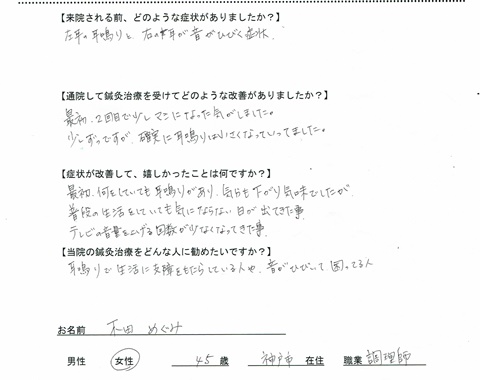 【来院される前、どのような症状がありましたか？】
左耳の耳鳴りと、右の耳が音がひびく症状。
【通院して鍼灸治療を受けてどのような改善がありましたか？】
最初、2回目で少しマシになった気がしました。
少しずつですが、確実に耳鳴りは小さくなっていってました。
【症状が改善して、嬉しかったことは何ですか？】
最初、何をしていても耳鳴りがあり、気分も下がり気味でしたが、
普段の生活をしていても気にならない日が出てきた事、
テレビの音量を上げる回数が少なくなってきた事。
【当院の鍼灸治療をどんな人に勧めたいですか？】
耳鳴りで生活に支障をもたらしている人や、音がひびいて困ってる人
お名前 木田 めぐみ
男性 女性 45歳 神戸市 在住 職業 調理師